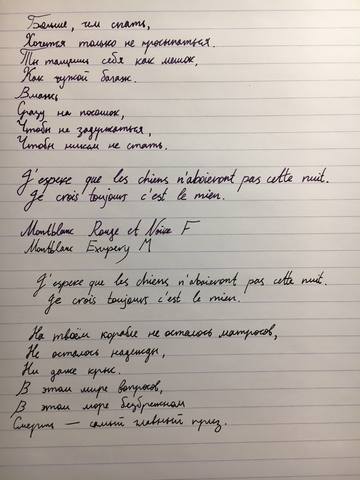 Больше, чем спать,
Хочется только не просыпаться.
Ты тащишь себя как мешок,
Как чужой багаж.
Вмажь
Сразу на посошок,
Чтобы не задержаться,
Чтобы никем не стать.
J'espere que les chiens n'aboieront pas cette nuit.
Je crois toujours c'est le mien.
Montblanc Rouge et Noire F
Montblanc Exupery M
J'espere que les chiens n'aboieront pas cette nuit.
Je crois toujours c'est le mien.
На твоём корабле не осталось матросов,
Не осталось надежды,
Ни даже крыс.
В этом мире вопросов,
В этом море безбрежном
Смерть — самый главный приз.